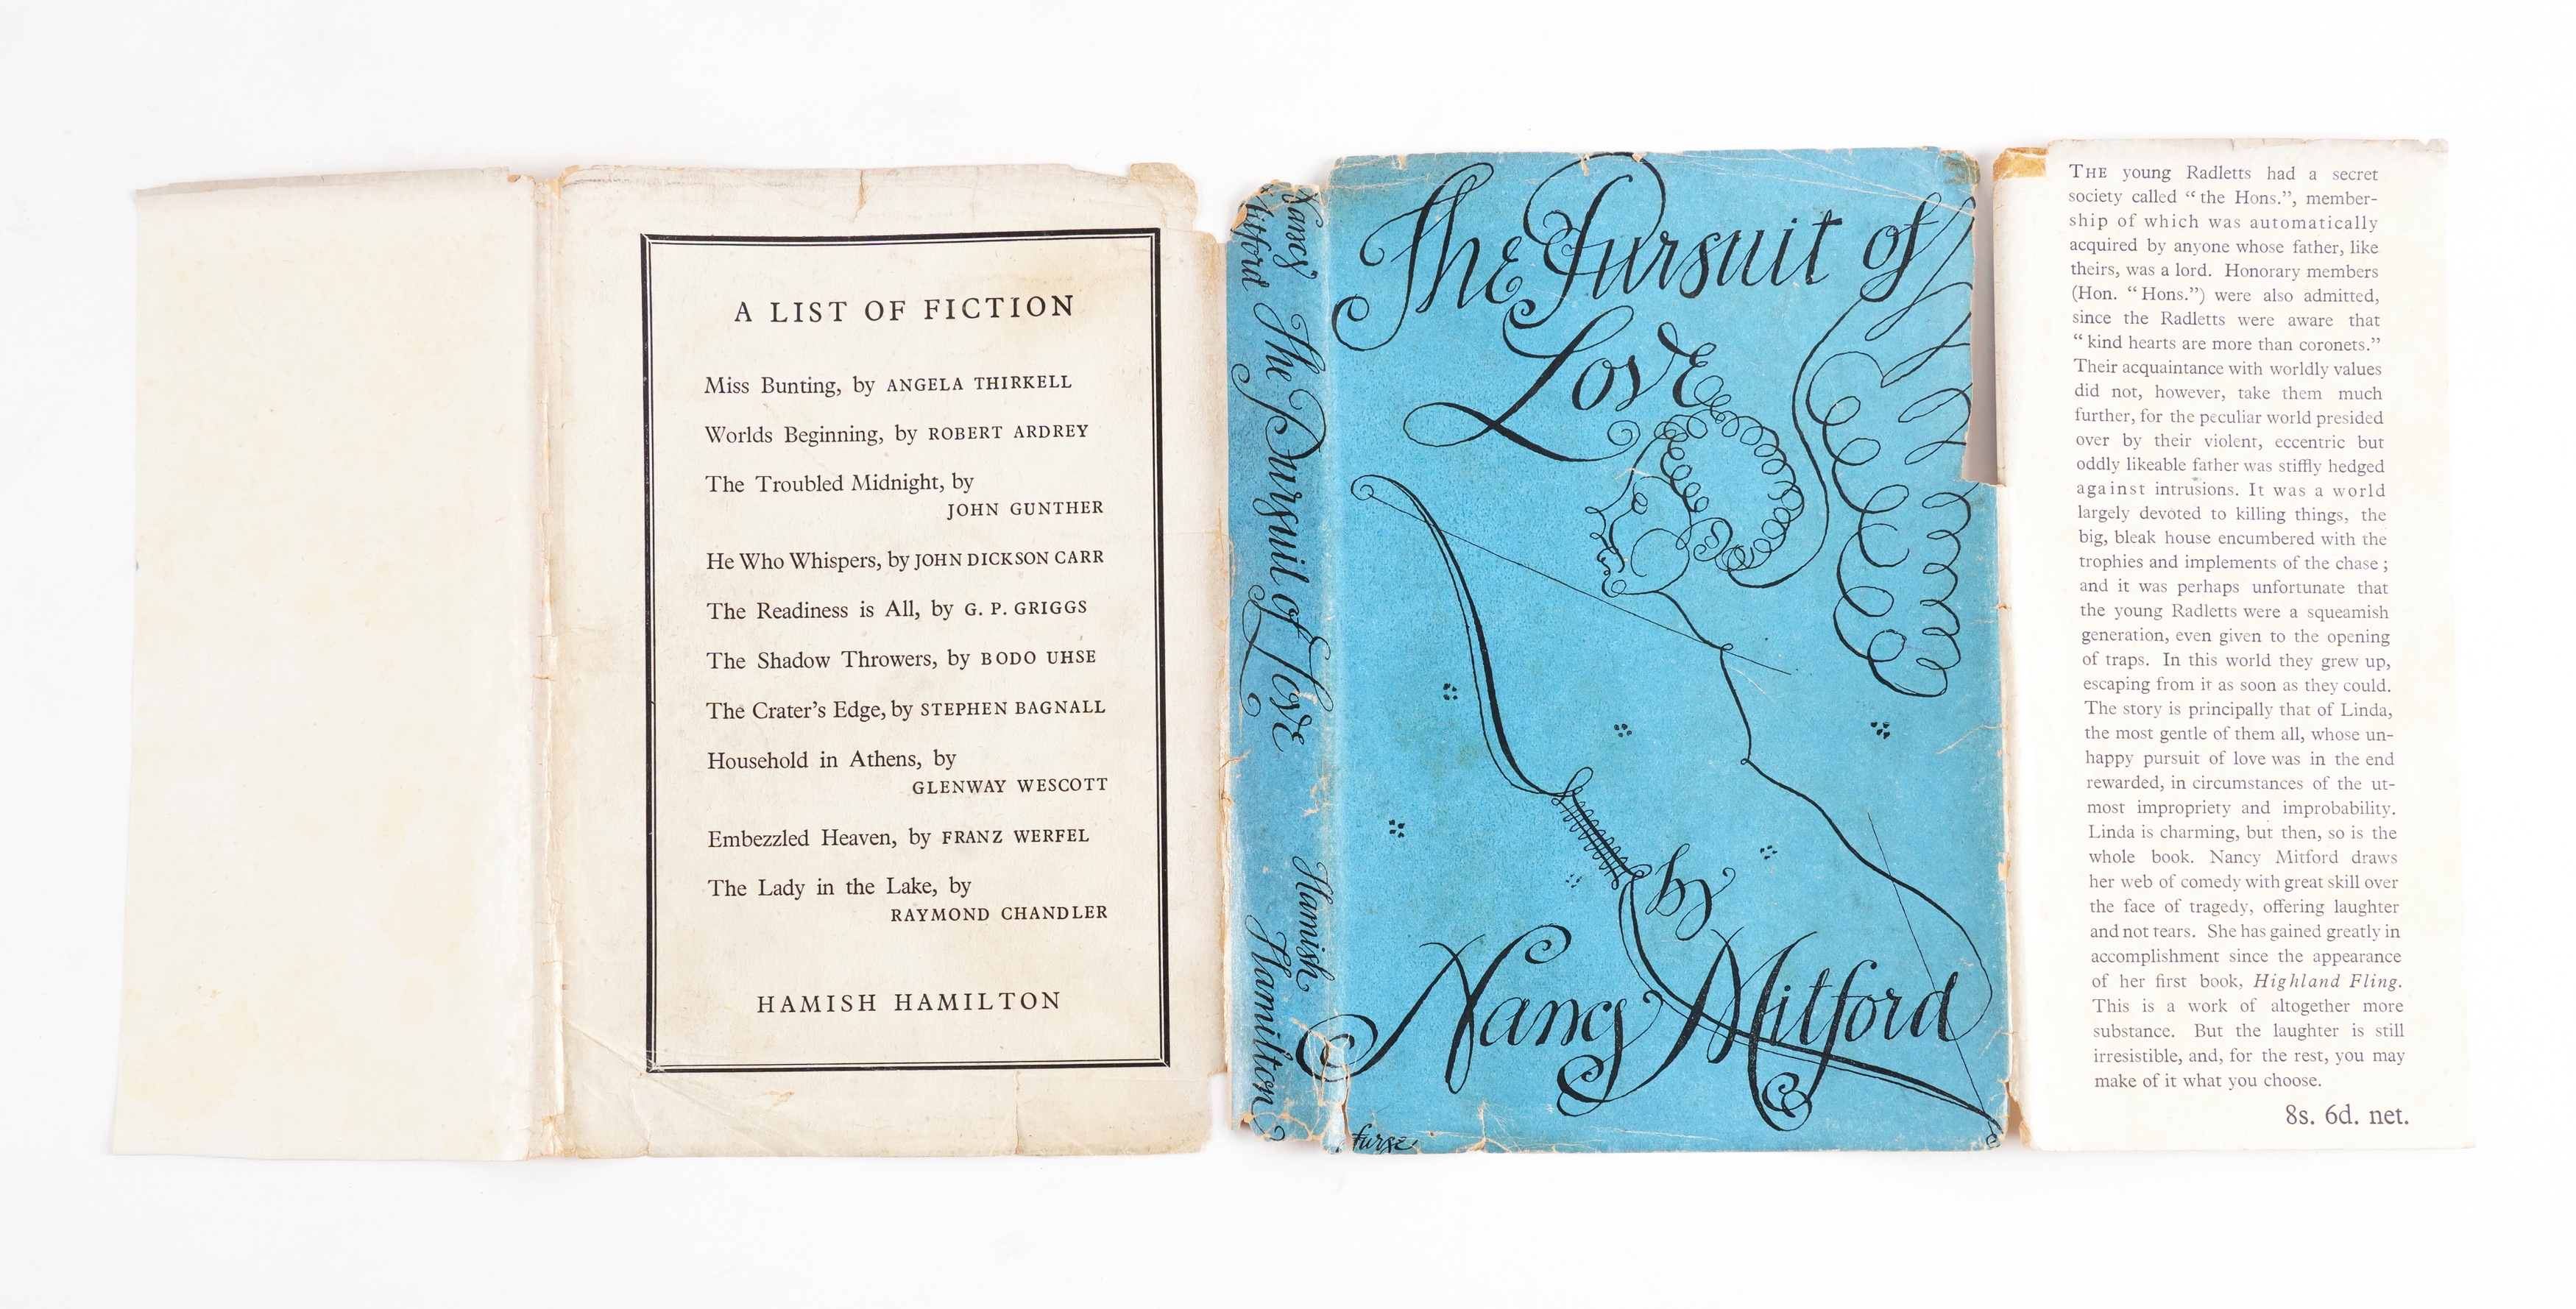 A LIST OF FICTION
Miss Bunting, by ANGELA THIRKELL
Worlds Beginning, by ROBERT ARDREY
The Troubled Midnight, by
JOHN GUNTHER
He Who Whispers, by JOHN DICKSON CARR
The Readiness is All, by G. P. GRIGGS
The Shadow Throwers, by BODO UHSE
The Crater's Edge, by STEPHEN BAGNALL
Household in Athens, by
GLENWAY WESCOTT
Embezzled Heaven, by FRANZ WERFEL
The Lady in the Lake, by
RAYMOND CHANDLER
HAMISH HAMILTON
Nancy
Mitford
The Pursuit of Love
Hamish
Hamilton
The Pursuit of
Love
by
Nancy Mitford
furse
THE young Radletts had a secret
society called “ the Hons.”, member-
ship of which was automatically
acquired by anyone whose father, like
theirs, was a lord. Honorary members
(Hon. “ Hons.”) were also admitted,
since the Radletts were aware that
“ kind hearts are more than coronets.”
Their acquaintance with worldly values
did not, however, take them much
further, for the peculiar world presided
over by their violent, eccentric but
oddly likeable father was stiffly hedged
against intrusions. It was a world
largely devoted to killing things, the
big, bleak house encumbered with the
trophies and implements of the chase ;
and it was perhaps unfortunate that
the young Radletts were a squeamish
generation, even given to the opening
of traps. In this world they grew up,
escaping from it as soon as they could.
The story is principally that of Linda,
the most gentle of them all, whose un-
happy pursuit of love was in the end
rewarded, in circumstances of the ut-
most impropriety and improbability.
Linda is charming, but then, so is the
whole book. Nancy Mitford draws
her web of comedy with great skill over
the face of tragedy, offering laughter
and not tears. She has gained greatly in
accomplishment since the appearance
of her first book, Highland Fling.
This is a work of altogether more
substance. But the laughter is still
irresistible, and, for the rest, you may
make of it what you choose.
8s. 6d. net.